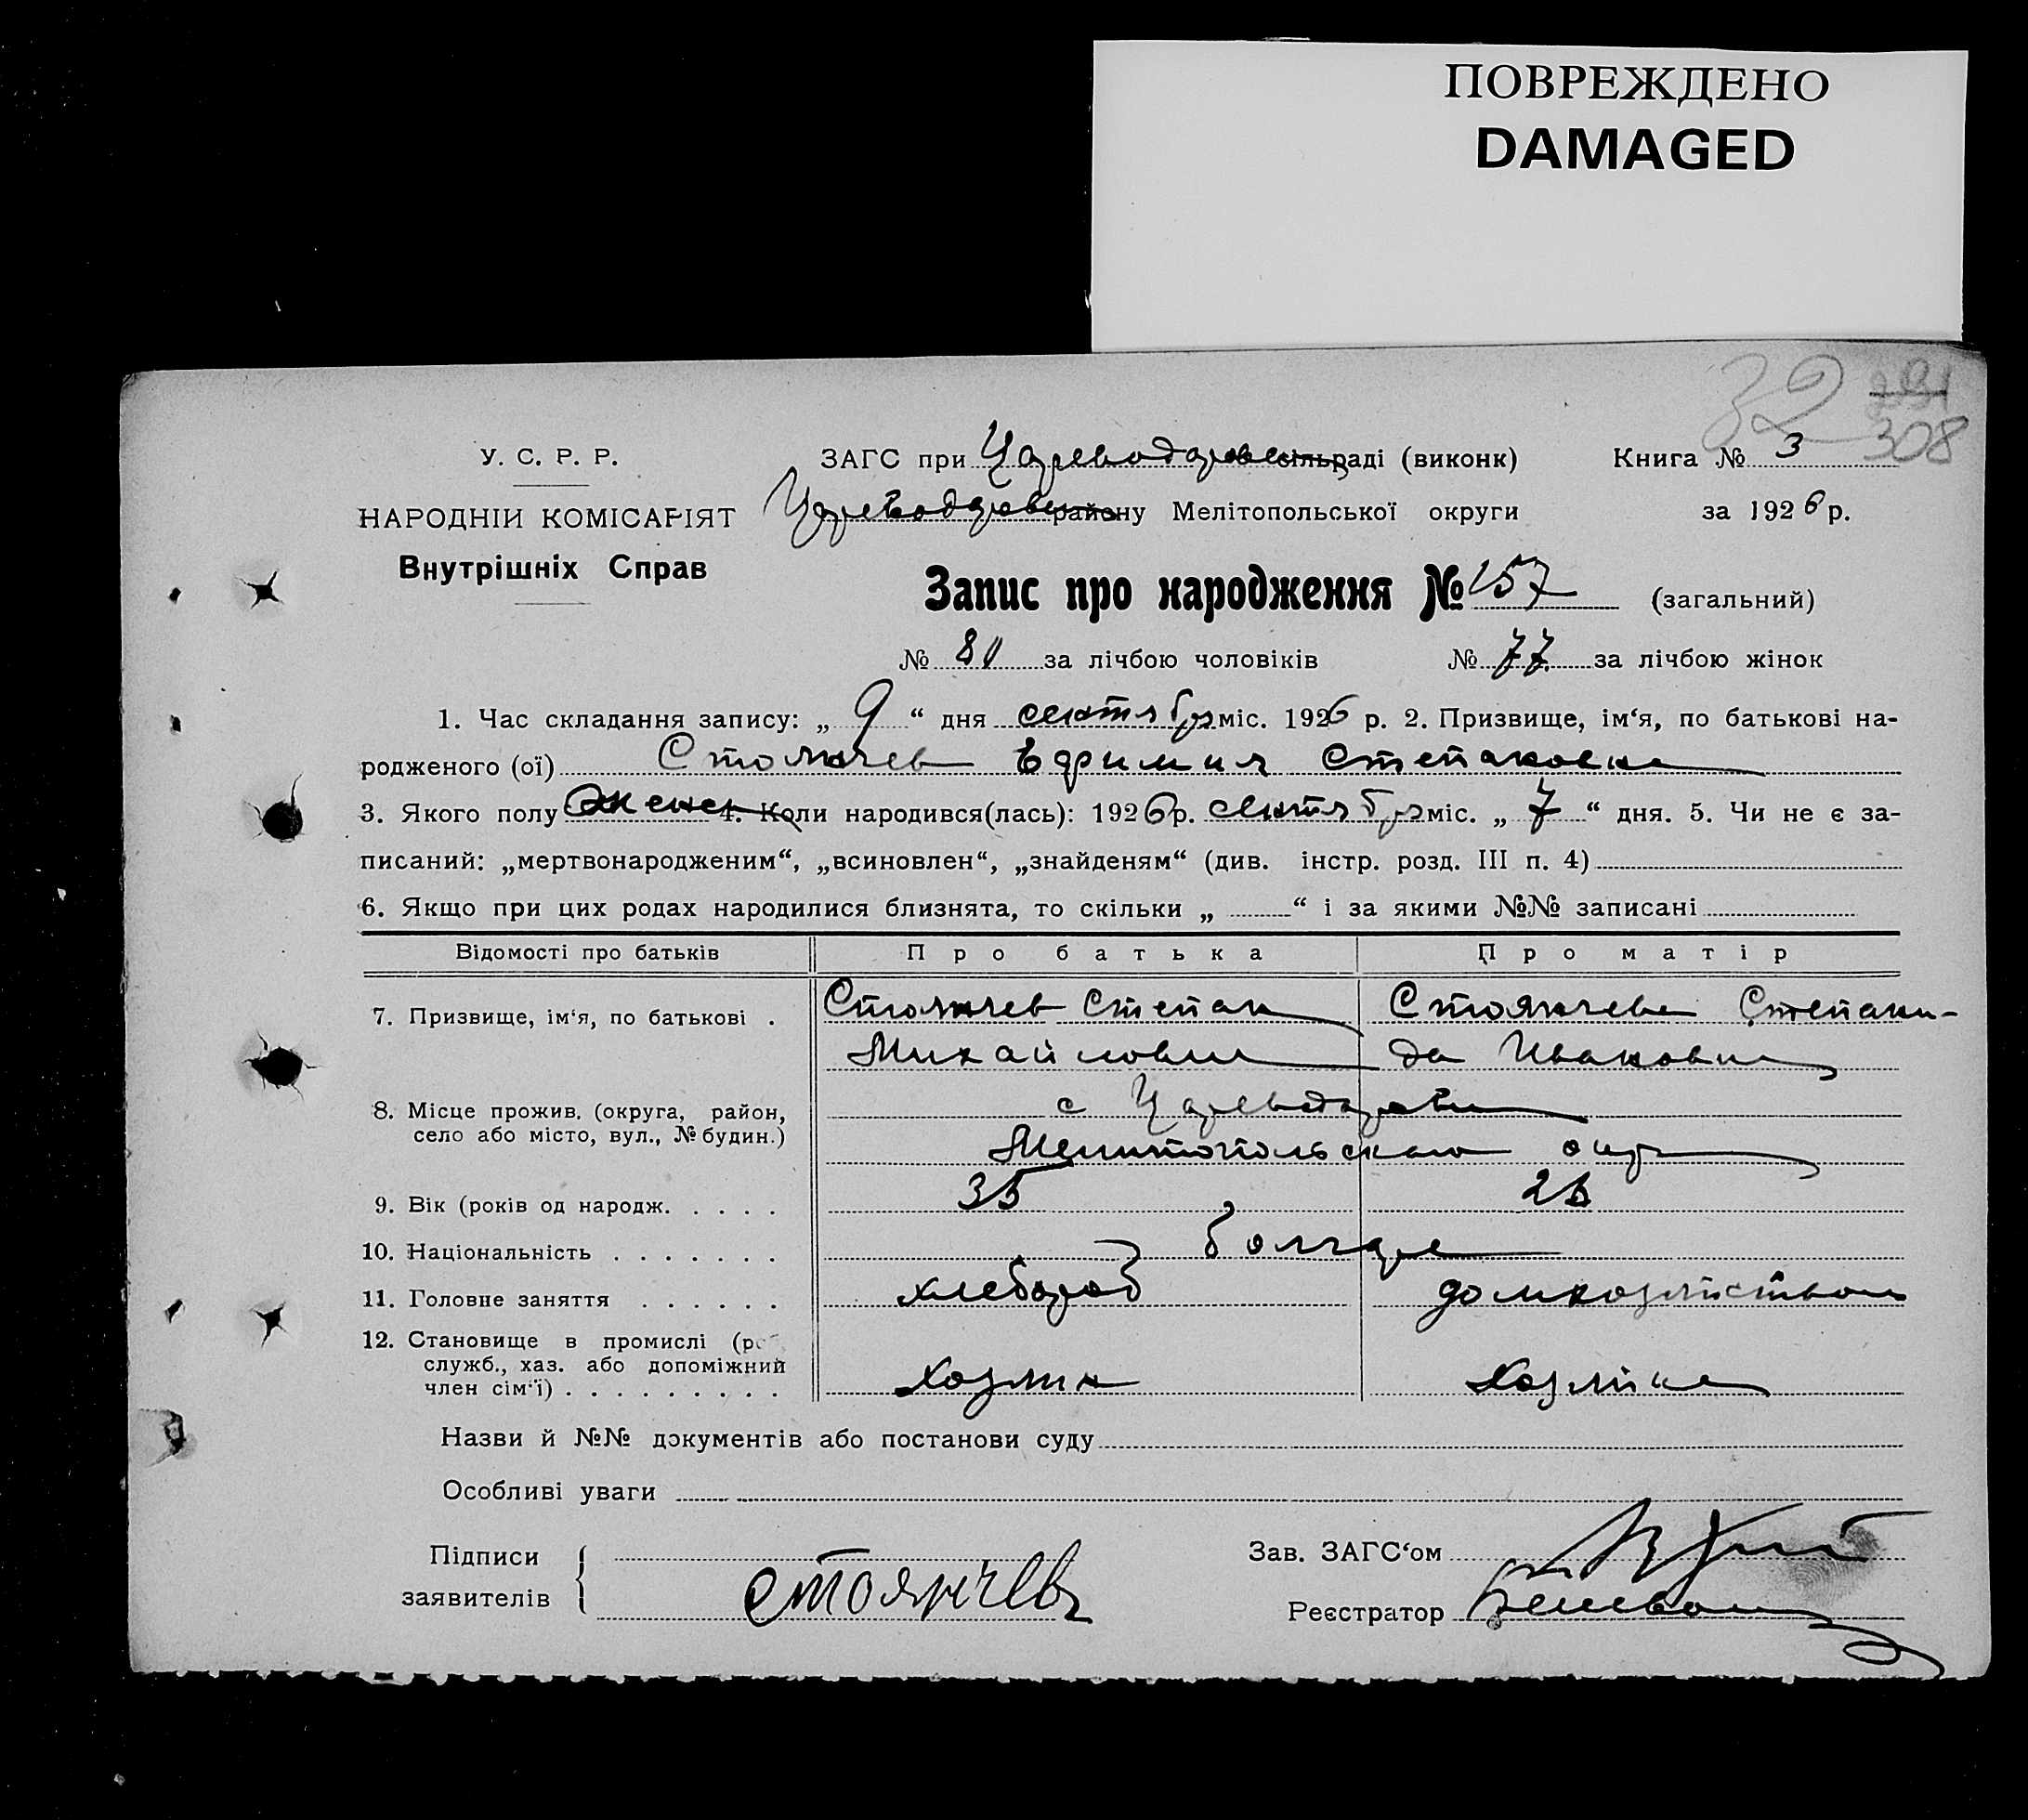 ПОВРЕЖДЕНО
DAMAGED
32 308
У. С. Р. Р.
ЗАГС при Цареводаровс сільраді (виконк)
Книга № 3
НАРОДНІИ КОМІСАРІЯТ
Цареводаровск району Мелітопольської округи
за 1926 р.
Внутрішніх Справ
Запис про народження № 157 (загальний)
№ 80 за лічбою чоловіків № 77 за лічбою жінок
1. Час складання запису: „ 9 “ дня сентября міс. 1926 р. 2. Призвище, ім‘я, по батькові на-
родженого (ої) Стоянчев Ефимия Степановна
3. Якого полу женск 4. Коли народився(лась): 1926 р. сентября міс. „ 7 “ дня. 5. Чи не є за-
писаний: „мертвонародженим“, „всиновлен“, „знайденям“ (див. інстр. розд. III п. 4)
6. Якщо при цих родах народилися близнята, то скільки „ “ і за якими №№ записані
Відомості про батьків Про батька Про матір
7. Призвище, ім‘я, по батькові . Стоянчев Степан Стоянчева Степани-
Михайлович да Ивановна
8. Місце прожив. (округа, район, с Цареводаровка
село або місто, вул., № будин.) Мелитопольского окр
9. Вік (років од народж. . . . . 35
10. Національність . . . . . . . болгаре
11. Головне заняття . . . . . . хлебороб домхозяйством
12. Становище в промислі (роб.
служб., хаз. або допоміжний хозяин хозяйка
член сім‘ї) . . . . . . . . .
Назви й №№ документів або постанови суду
Особливі уваги
Підписи
заявителів Стоянчевъ
Зав. ЗАГС‘ом
Реєстратор